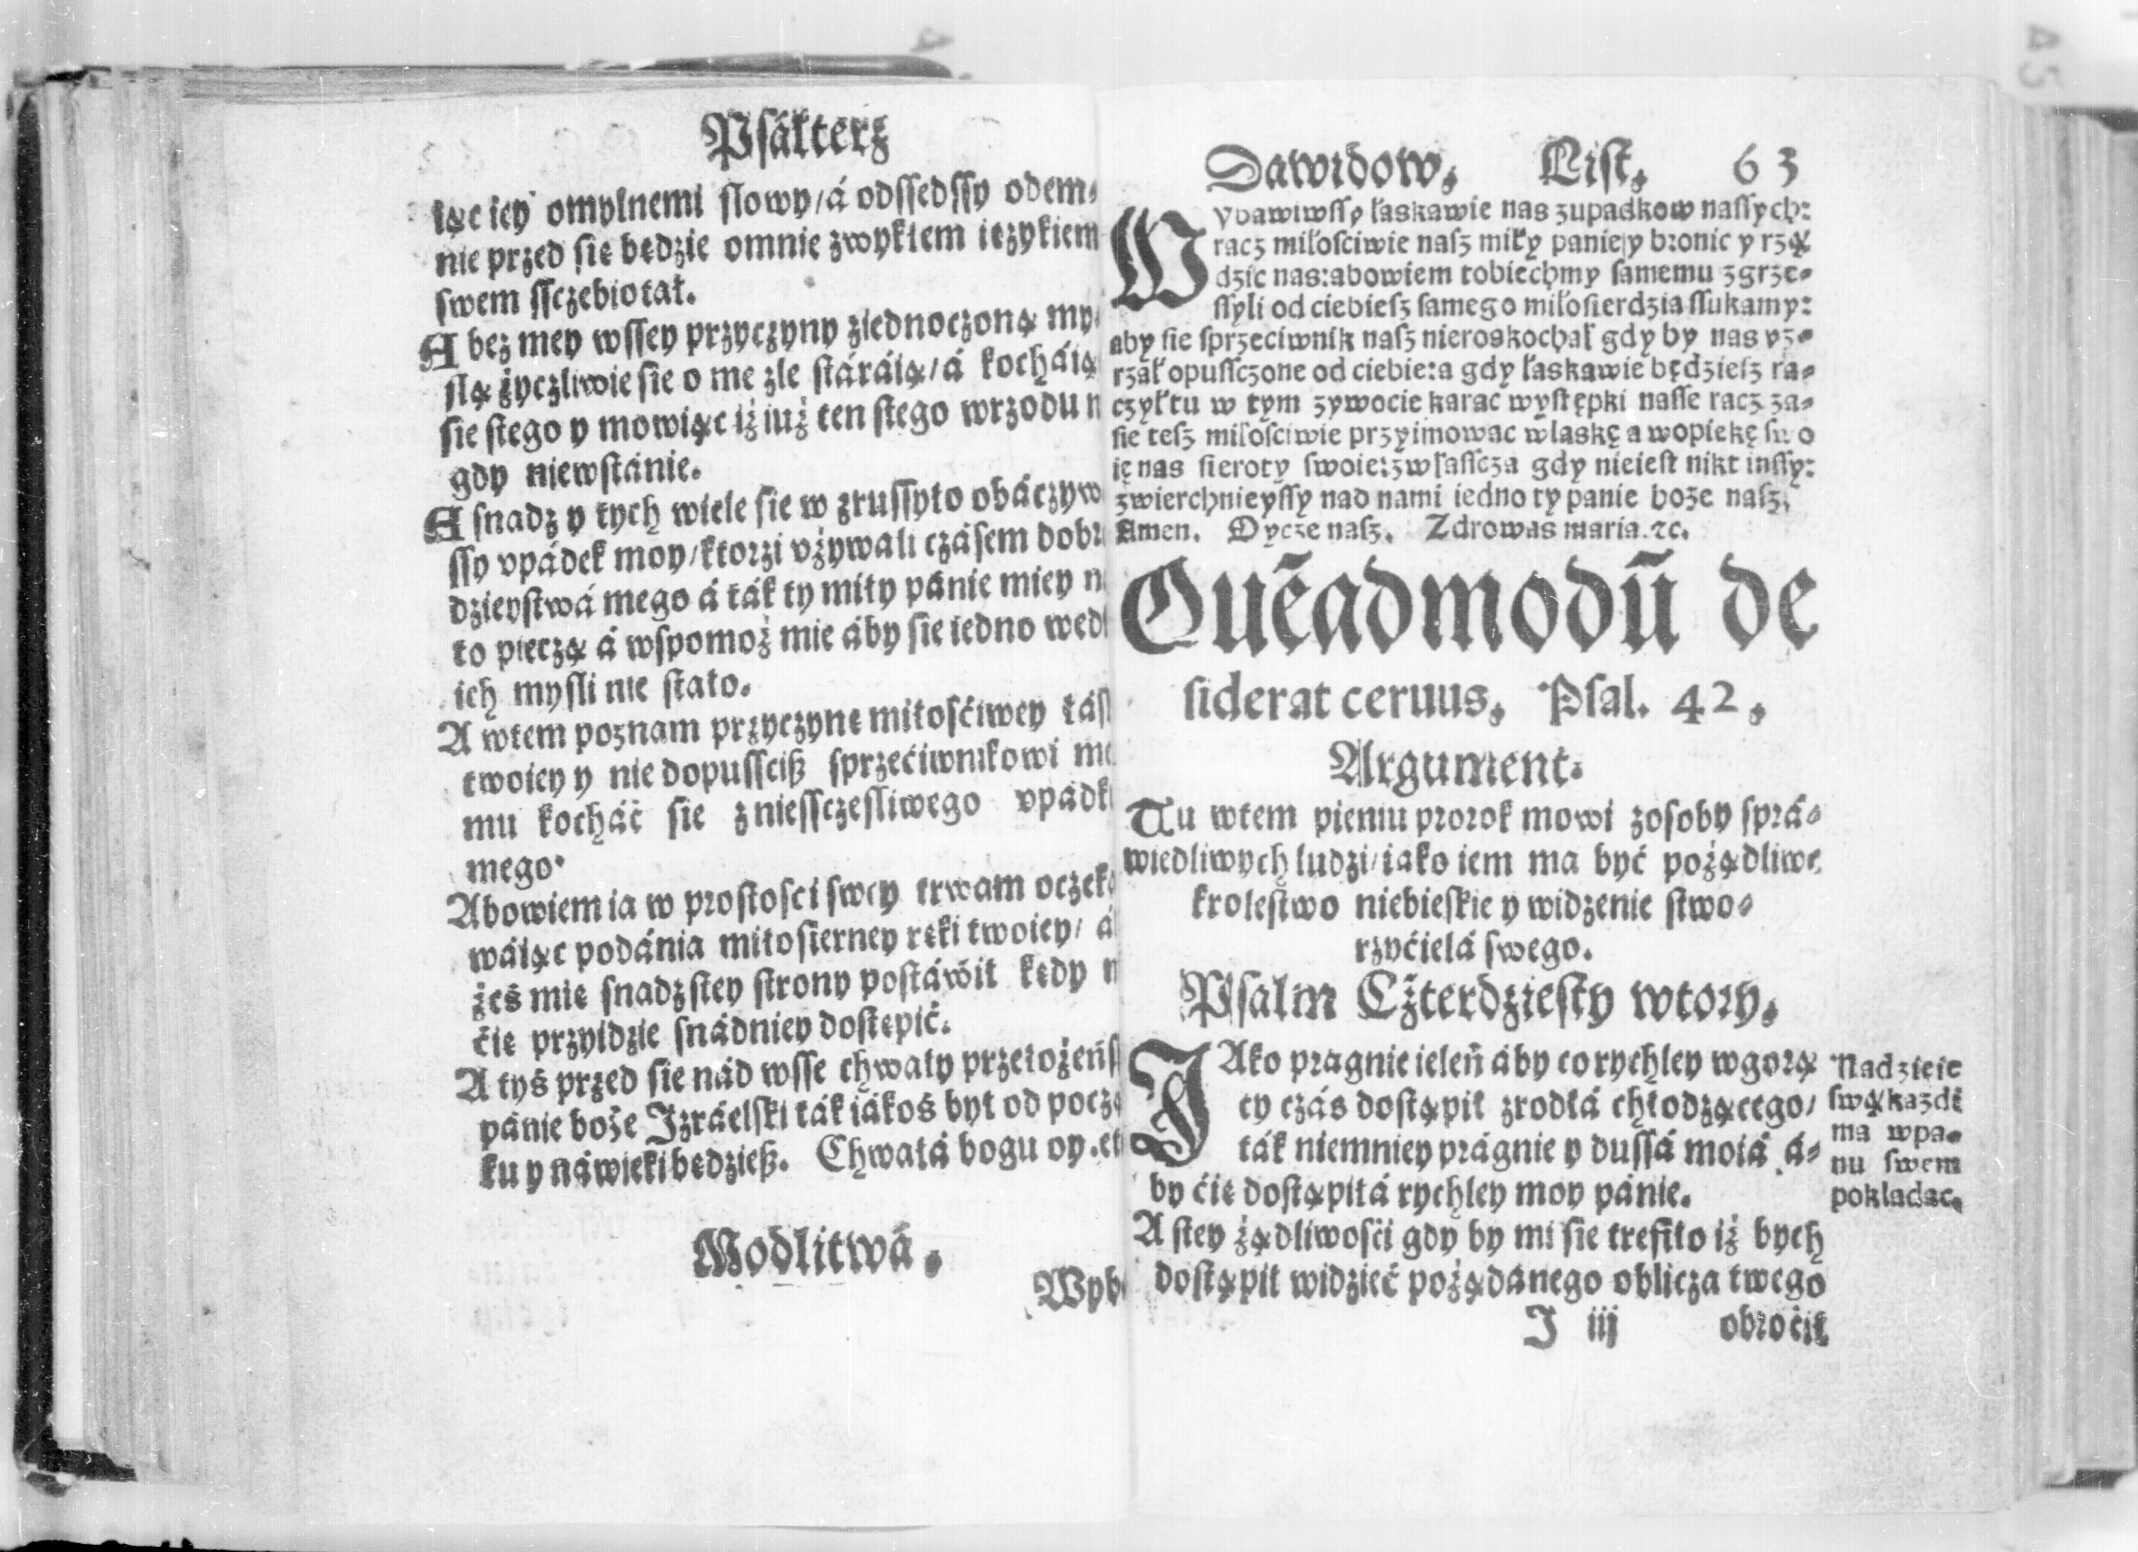 Psałterz
iąc iey omylnemi słowy/á odsſedſſy odem⸗
nie przed się będzie omnie zwykłem ięzykiem
swem sſczebiotał.
A bez mey wsſey przyczyny ziednoczoną my⸗
slą życzliwie sie o me zle stáráią/á kocháią
sie stego y mowiąc iż iuż ten stego wrzodu
gdy niewstánie.
A snadz y tych wiele sie w zrusſyło obáczyw
sſy vpádek moy/ktorzi vżywali czásem dobr
dzieystwá mego á ták ty miły pánie miey
to pieczą á wspomoż mie áby sie iedno wedł
ich mysli nie stało.
A wtem poznam przyczynę miłosćiwey łás
twoiey y nie dopusſciß sprzećiwnikowi
mu kocháć sie zniesſczesliwego vpádk
mego.
Abowiem ia w prostosci swey trwam oczek
wáiąc podánia miłosierney ręki twoiey/
żeś mię snadz stey strony postáwił kędy
ćię przyidzie snádniey dostępić.
A tyś przed sie nád wsſe chwały przełożeńs
pánie boże Izráelski ták iákoś był od począ
ku y náwieki będzieß. Chwałá bogu oy.
Modlitwá.
Wyb
Dawidow. List. 63
Wybawiwsſy łaskawie nas zupadkow nasſych:
racz miłosciwie nasz miły panie y bronic y rzą
dzic nas: abowiem tobiechmy samemu zgrze⸗
sſyli od ciebiesz samego miłosierdzia sſukamy:
aby sie sprzeciwnik nasz nieroskochał gdy by nas vz⸗
rzał opusſczone od ciebie: a gdy łaskawie będziesz ra⸗
czył tu w tym zywocie karac występki nasſe racz za⸗
sie tesz miłosciwie przyimowac wlaskę a wopiekę swo
ię nas sieroty swoie: zwłasſcza gdy nieiest nikt insſy:
zwierchnieysſy nad nami iedno ty panie boze nasz,
Amen. Oycze nasz. Zdrowas maria. ⁊c.
Quēadmodū de
siderat ceruus. Psal. 42.
Argument.
Tu wtem pieniu prorok mowi zosoby sprá⸗
wiedliwych ludzi/iako iem ma być pożądliwe
krolestwo niebieskie y widzenie stwo⸗
rzyćielá swego.
Psalm Czterdziesty wtory.
IAko pragnie ieleń áby co rychley wgorą
cy czás dostąpił zrodłá chłodzącego/
ták niemniey prágnie y dusſá moiá á⸗
by ćię dostąpiłá rychley moy pánie.
A stey żądliwosći gdy by mi sie trefiło iż bych
dostąpił widzieć pożądánego oblicza twego
I iij obroćił
Nadzieie
swą kazdē
ma wpa⸗
nu swem
pokladac.